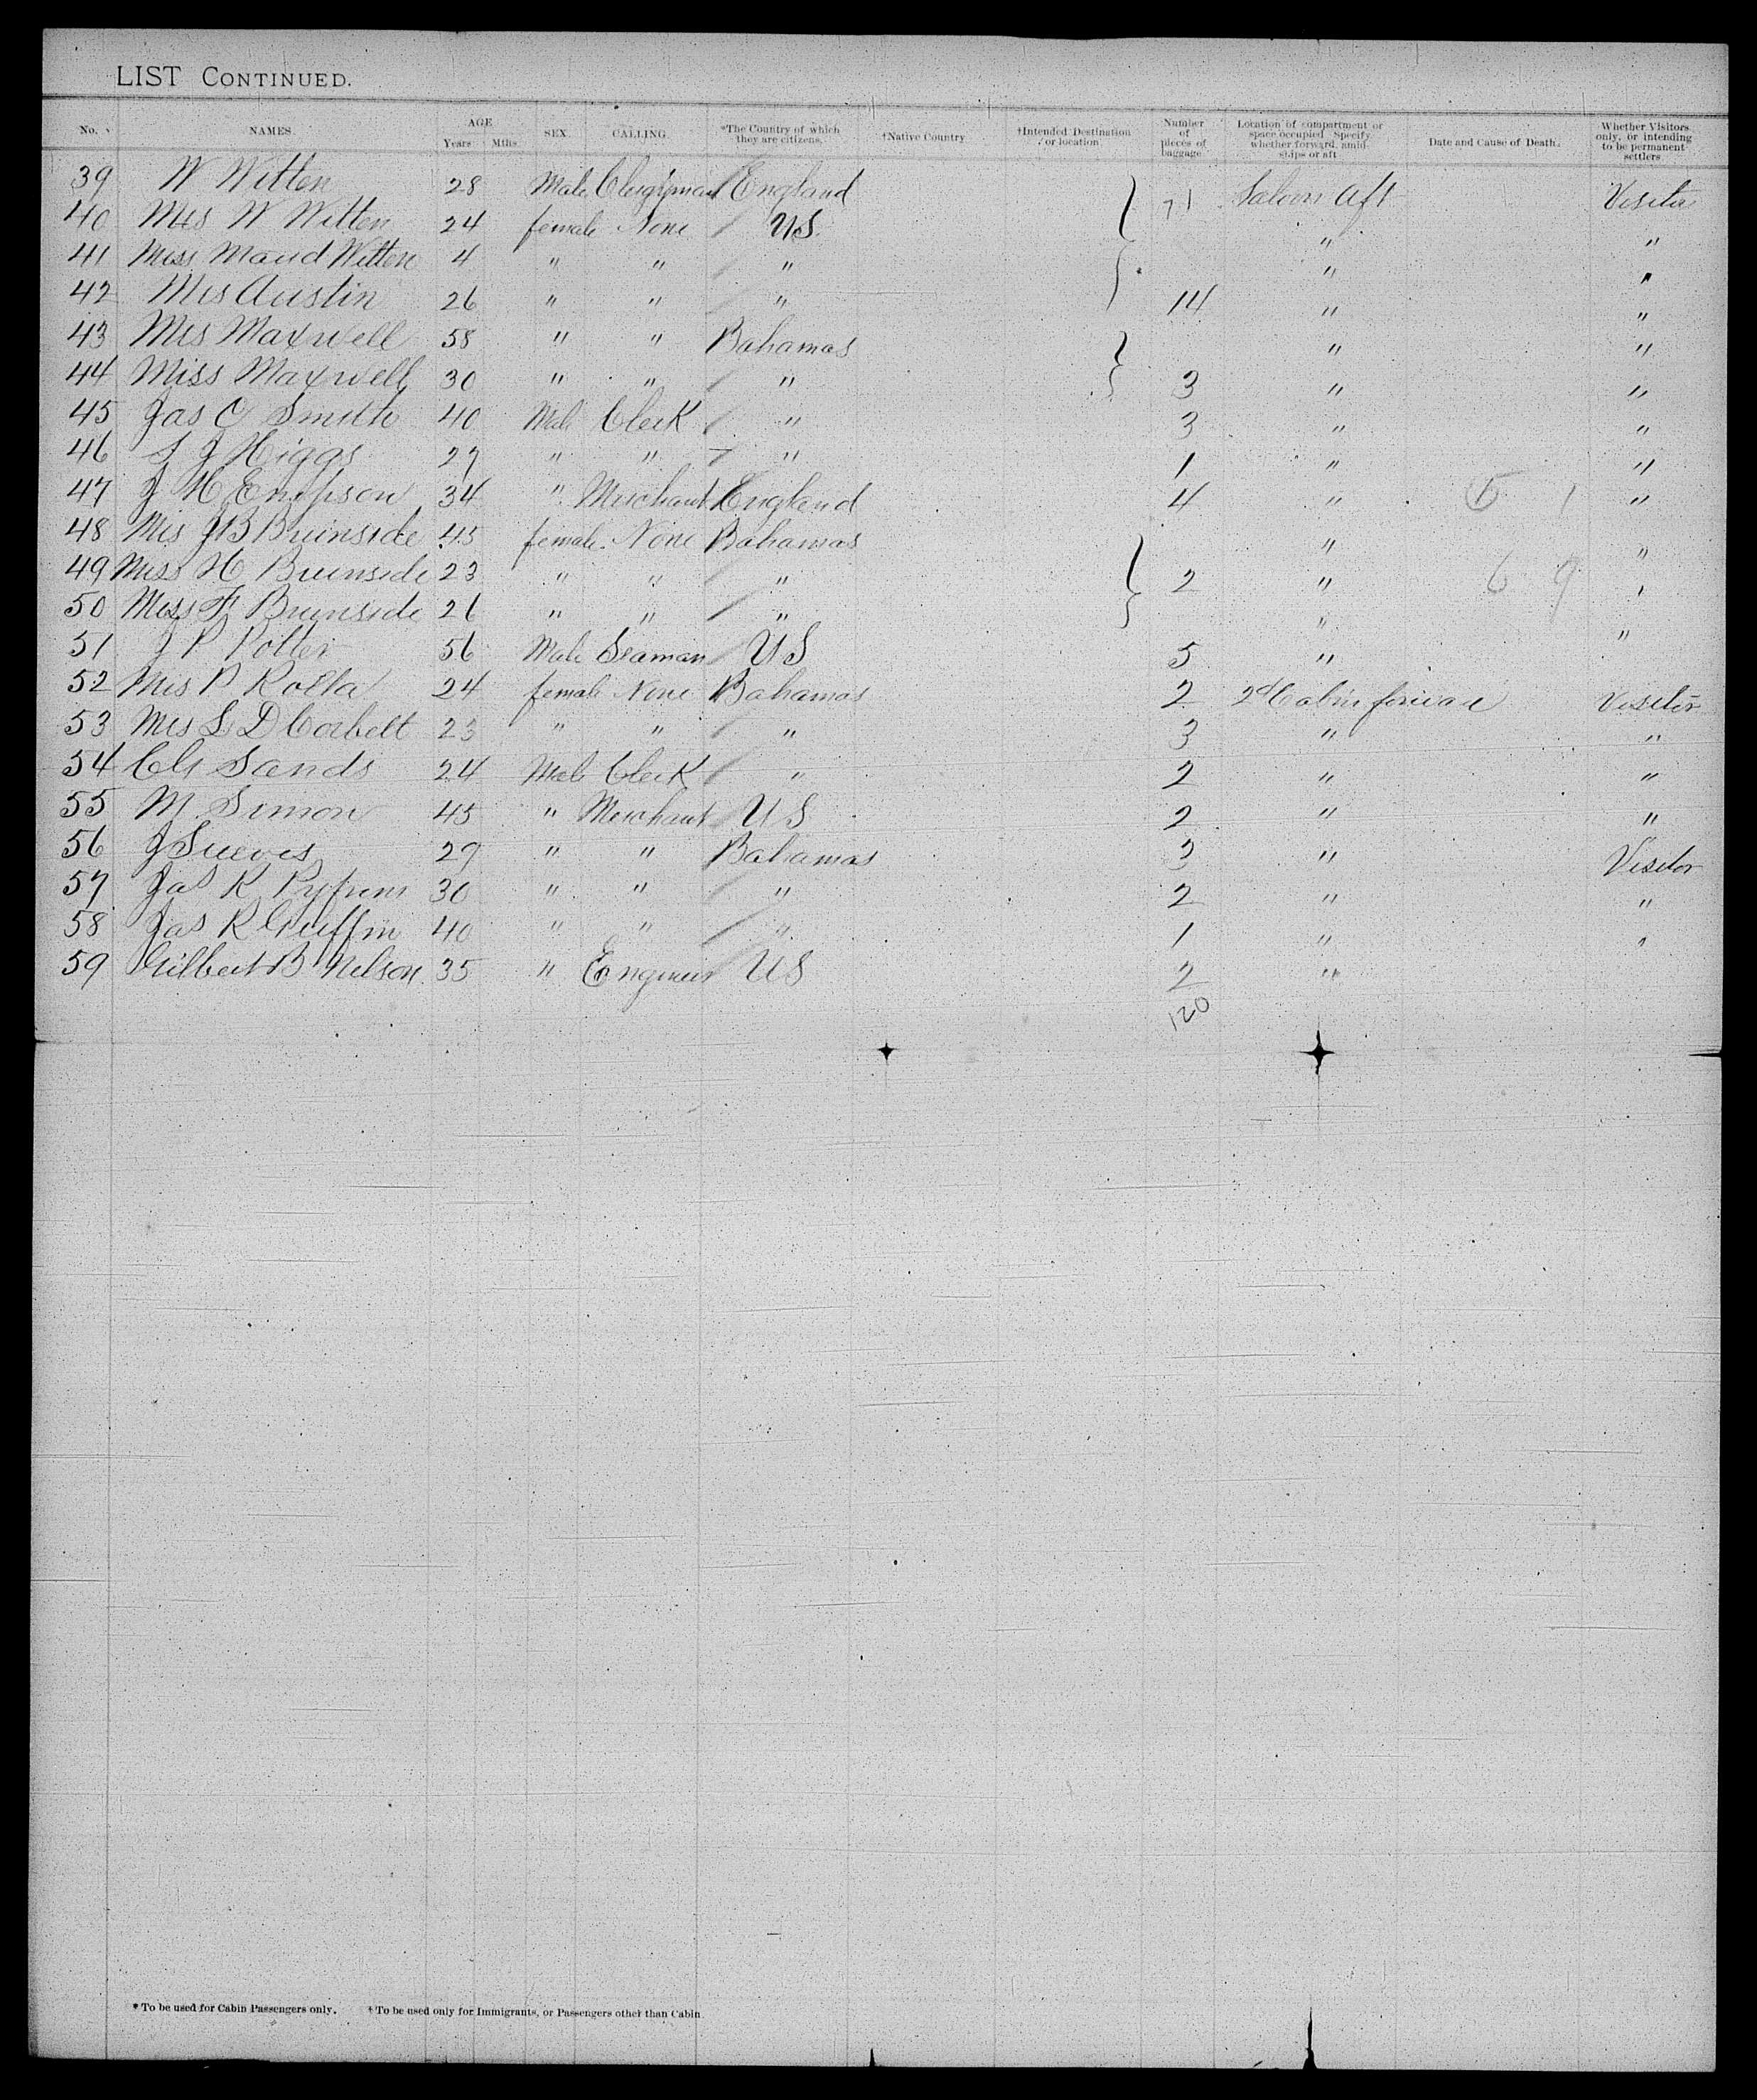 LIST CONTINUED.
No. NAMES. AGE Years Mths. SEX. CALLING. *The Country of which they are citizens. †Native Country †Intended Destination or location. Number of pieces of baggage Location of compartment or space occupied. Specify whether forward, amidships or aft Date and Cause of Death. Whether Visitors only, or intending to be permanent settlers
39 W Witten 28 Male Clergyman England Saloon Aft Visitor
40 Mrs W Witten 24 female None US " "
41 Miss Maud Witten 4 " " " " "
42 Mrs Austin 26 " " " 14 " "
43 Mrs Maxwell 58 " " Bahamas " "
44 Miss Maxwell 30 " " " 3 " "
45 Jas C Smith 40 Male Clerk " 3 " "
46 J Higgs 27 " " " 1 " "
47 J H 34 " Merchant England 4 " 1 "
48 Mrs J B Burnside 45 female None Bahamas " "
49 Miss H Burnside 23 " " " 2 " 6 9 "
50 Miss F Burnside 26 " " " " "
51 J P Potter 56 Male Seaman US 5 "
52 Mrs P Rolla 24 female None Bahamas 2 2d Cabin Visitor
53 Mrs L D Corbett 23 " " " 3 " "
54 Sands 24 Male Clerk " 2 " "
55 M. Simon 45 " Merchant US 2 " "
56 J 29 " " Bahamas 3 " Visitor
57 Jas R 30 " " " 2 " "
58 Jas R Griffin 40 " " " 1 " "
59 Gilbert B Nelson 35 " Engineer US 2 "
120
* To be used for Cabin Passengers only. † To be used only for Immigrants, or Passengers other than Cabin.